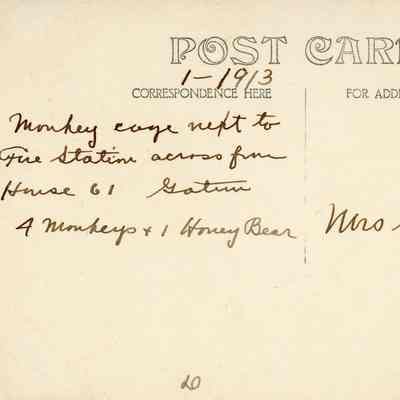 POST CAR
1-1913
CORRESPONDENCE HERE
FOR ADD
Monkey cage next to
Fire Station across from
House 61 Gatun
4 Monkeys + 1 Honey Bear
Mrs